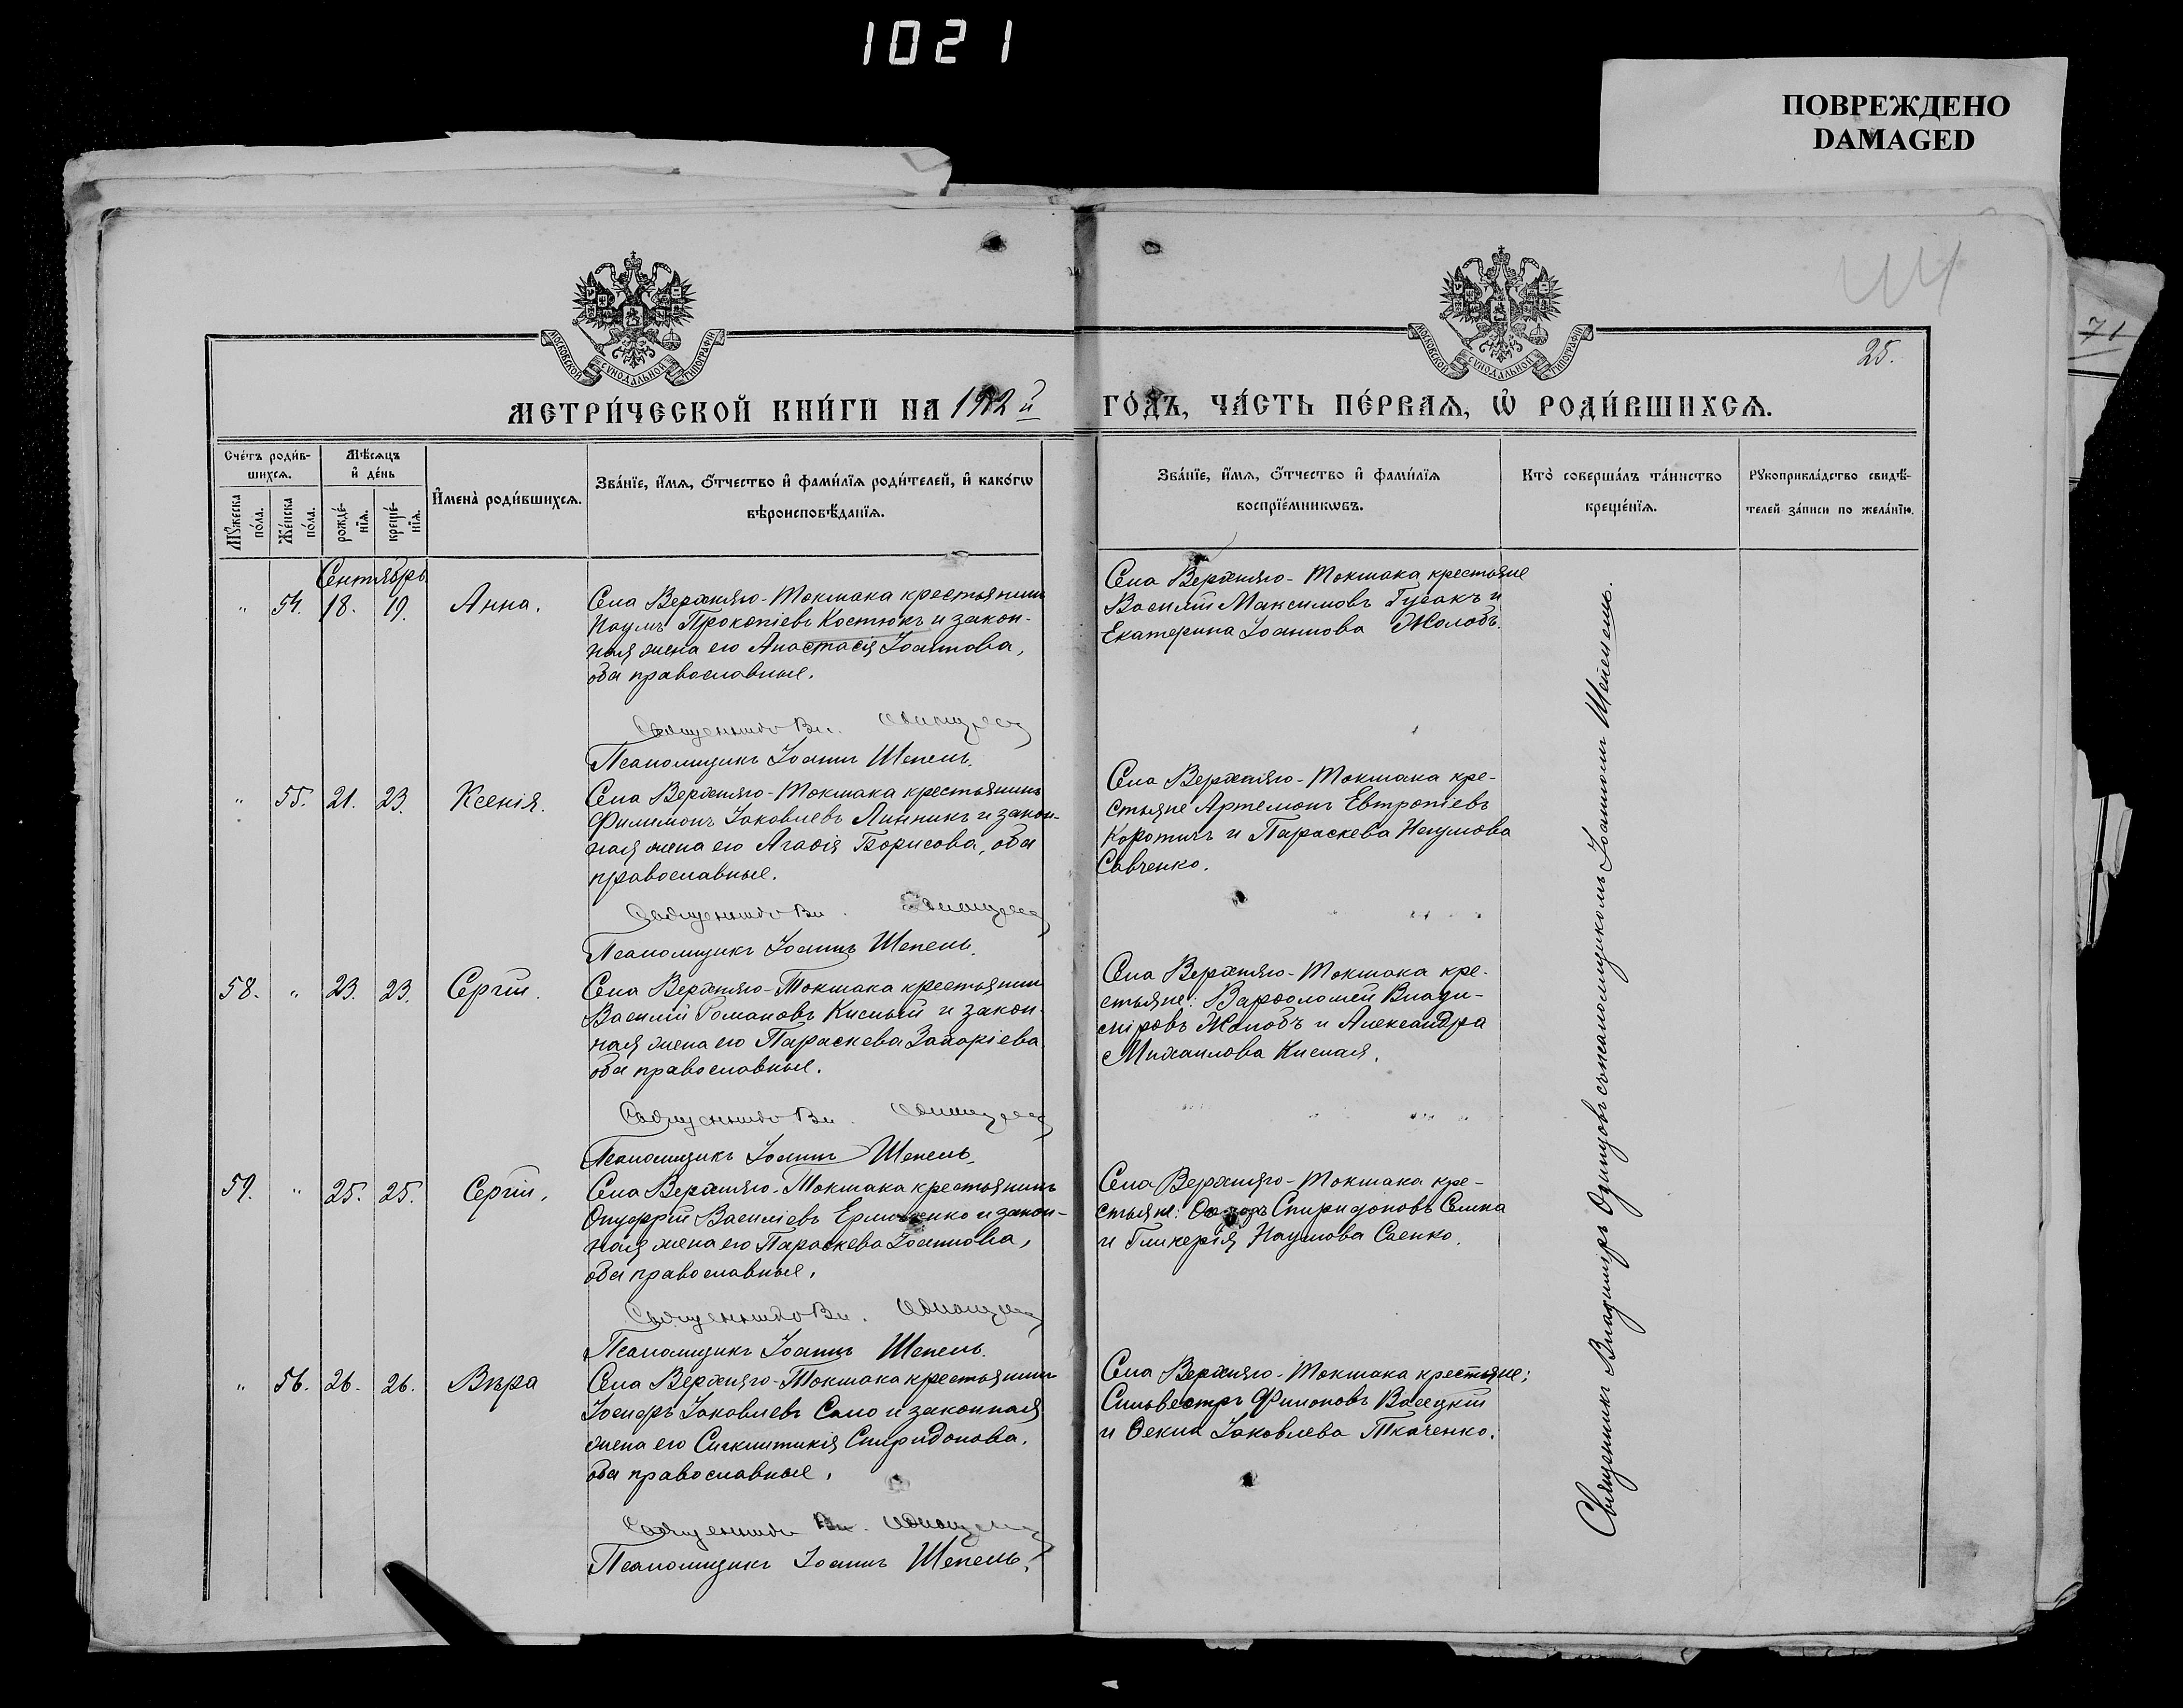 1021
ПОВРЕЖДЕНО
DAMAGED
44
71
25.
МОСКОВСКОЙ СУНОДАЛЬНОЙ ТИПОГРАФІИ
МОСКОВСКОЙ СУНОДАЛЬНОЙ ТИПОГРАФІИ
МЕТРИ́ЧЕСКОЙ КНИ́ГИ НА 1912 й ГО́ДЪ, ЧА́СТЬ ПЕ́РВАЯ, Ѡ РОДИ́ВШИХСЯ.
Сче́тъ роди́в-
шихся.
Мѣ́сяцъ
и҆ де́нь
Мꙋ́жеска
по́ла.
Же́нска
по́ла.
рожде́-
нїя.
креще́-
нїя.
И҆мена̀ роди́вшихся.
Зва́нїе, и҆́мя, ѻ҆́тчество и҆ фами́лїя роди́телей, и҆ како́гѡ
вѣроисповѣ́данїя.
Зва́нїе, и҆́мя, ѻ҆́тчество и҆ фами́лїя
воспрїе́мникѡвъ.
Кто̀ соверша́лъ та́инство
креще́нїя.
Рꙋкоприкла́дство свидѣ́-
телей за́писи по жела́нїю.
Сентябрь
" 54. 18. 19. Анна.
Села Верхняго-Токмака крестьянинъ
Наумъ Прокопіевъ Костюкъ и закон-
ная жена его Анастасія Іоаннова,
оба православные.
Священникъ Вл. Одинцовъ
Псаломщикъ Іоаннъ Шепель.
Села Верхняго-Токмака крестьяне
Василій Максимовъ Гусакъ и
Екатерина Іоаннова Жолобъ.
" 55. 21. 23. Ксенія.
Села Верхняго-Токмака крестьянинъ
Филимонъ Іаковлевъ Линникъ и закон-
ная жена его Агафія Борисова, оба
православные.
Священникъ Вл. Одинцовъ
Псаломщикъ Іоаннъ Шепель.
Села Верхняго-Токмака кре-
стьяне Артемонъ Евтропіевъ
Коротичъ и Параскева Наумова
Савченко.
58. " 23. 23. Сергій.
Села Верхняго-Токмака крестьянинъ
Василій Романовъ Кислый и закон-
ная жена его Параскева Захаріева
оба православные.
Священникъ Вл. Одинцовъ
Псаломщикъ Іоаннъ Шепель.
Села Верхняго-Токмака кре-
стьяне: Варѳоломей Влади-
міровъ Жолобъ и Александра
Михаилова Кислая.
59. " 25. 25. Сергій.
Села Верхняго-Токмака крестьянинъ
Онуфрій Василіевъ и закон-
ная жена его Параскева Іоаннова,
оба православные.
Священникъ Вл. Одинцовъ
Псаломщикъ Іоаннъ Шепель.
Села Верхняго-Токмака кре-
стьяне: Спиридоновъ
и Гликерія Наумова Саенко.
" 56. 26. 26. Вѣра
Села Верхняго-Токмака крестьянинъ
Іосифъ Іаковлевъ Сало и законная
жена его Синклитикія Спиридонова.
оба православные.
Священникъ Вл. Одинцовъ
Псаломщикъ Іоаннъ Шепель.
Села Верхняго-Токмака крестьяне:
Сильвестръ Филоновъ Васецкій
и Ѳекла Іаковлева Ткаченко.
Священникъ Владиміръ Одинцовъ съ псаломщикомъ Іоанномъ Шепелемъ.